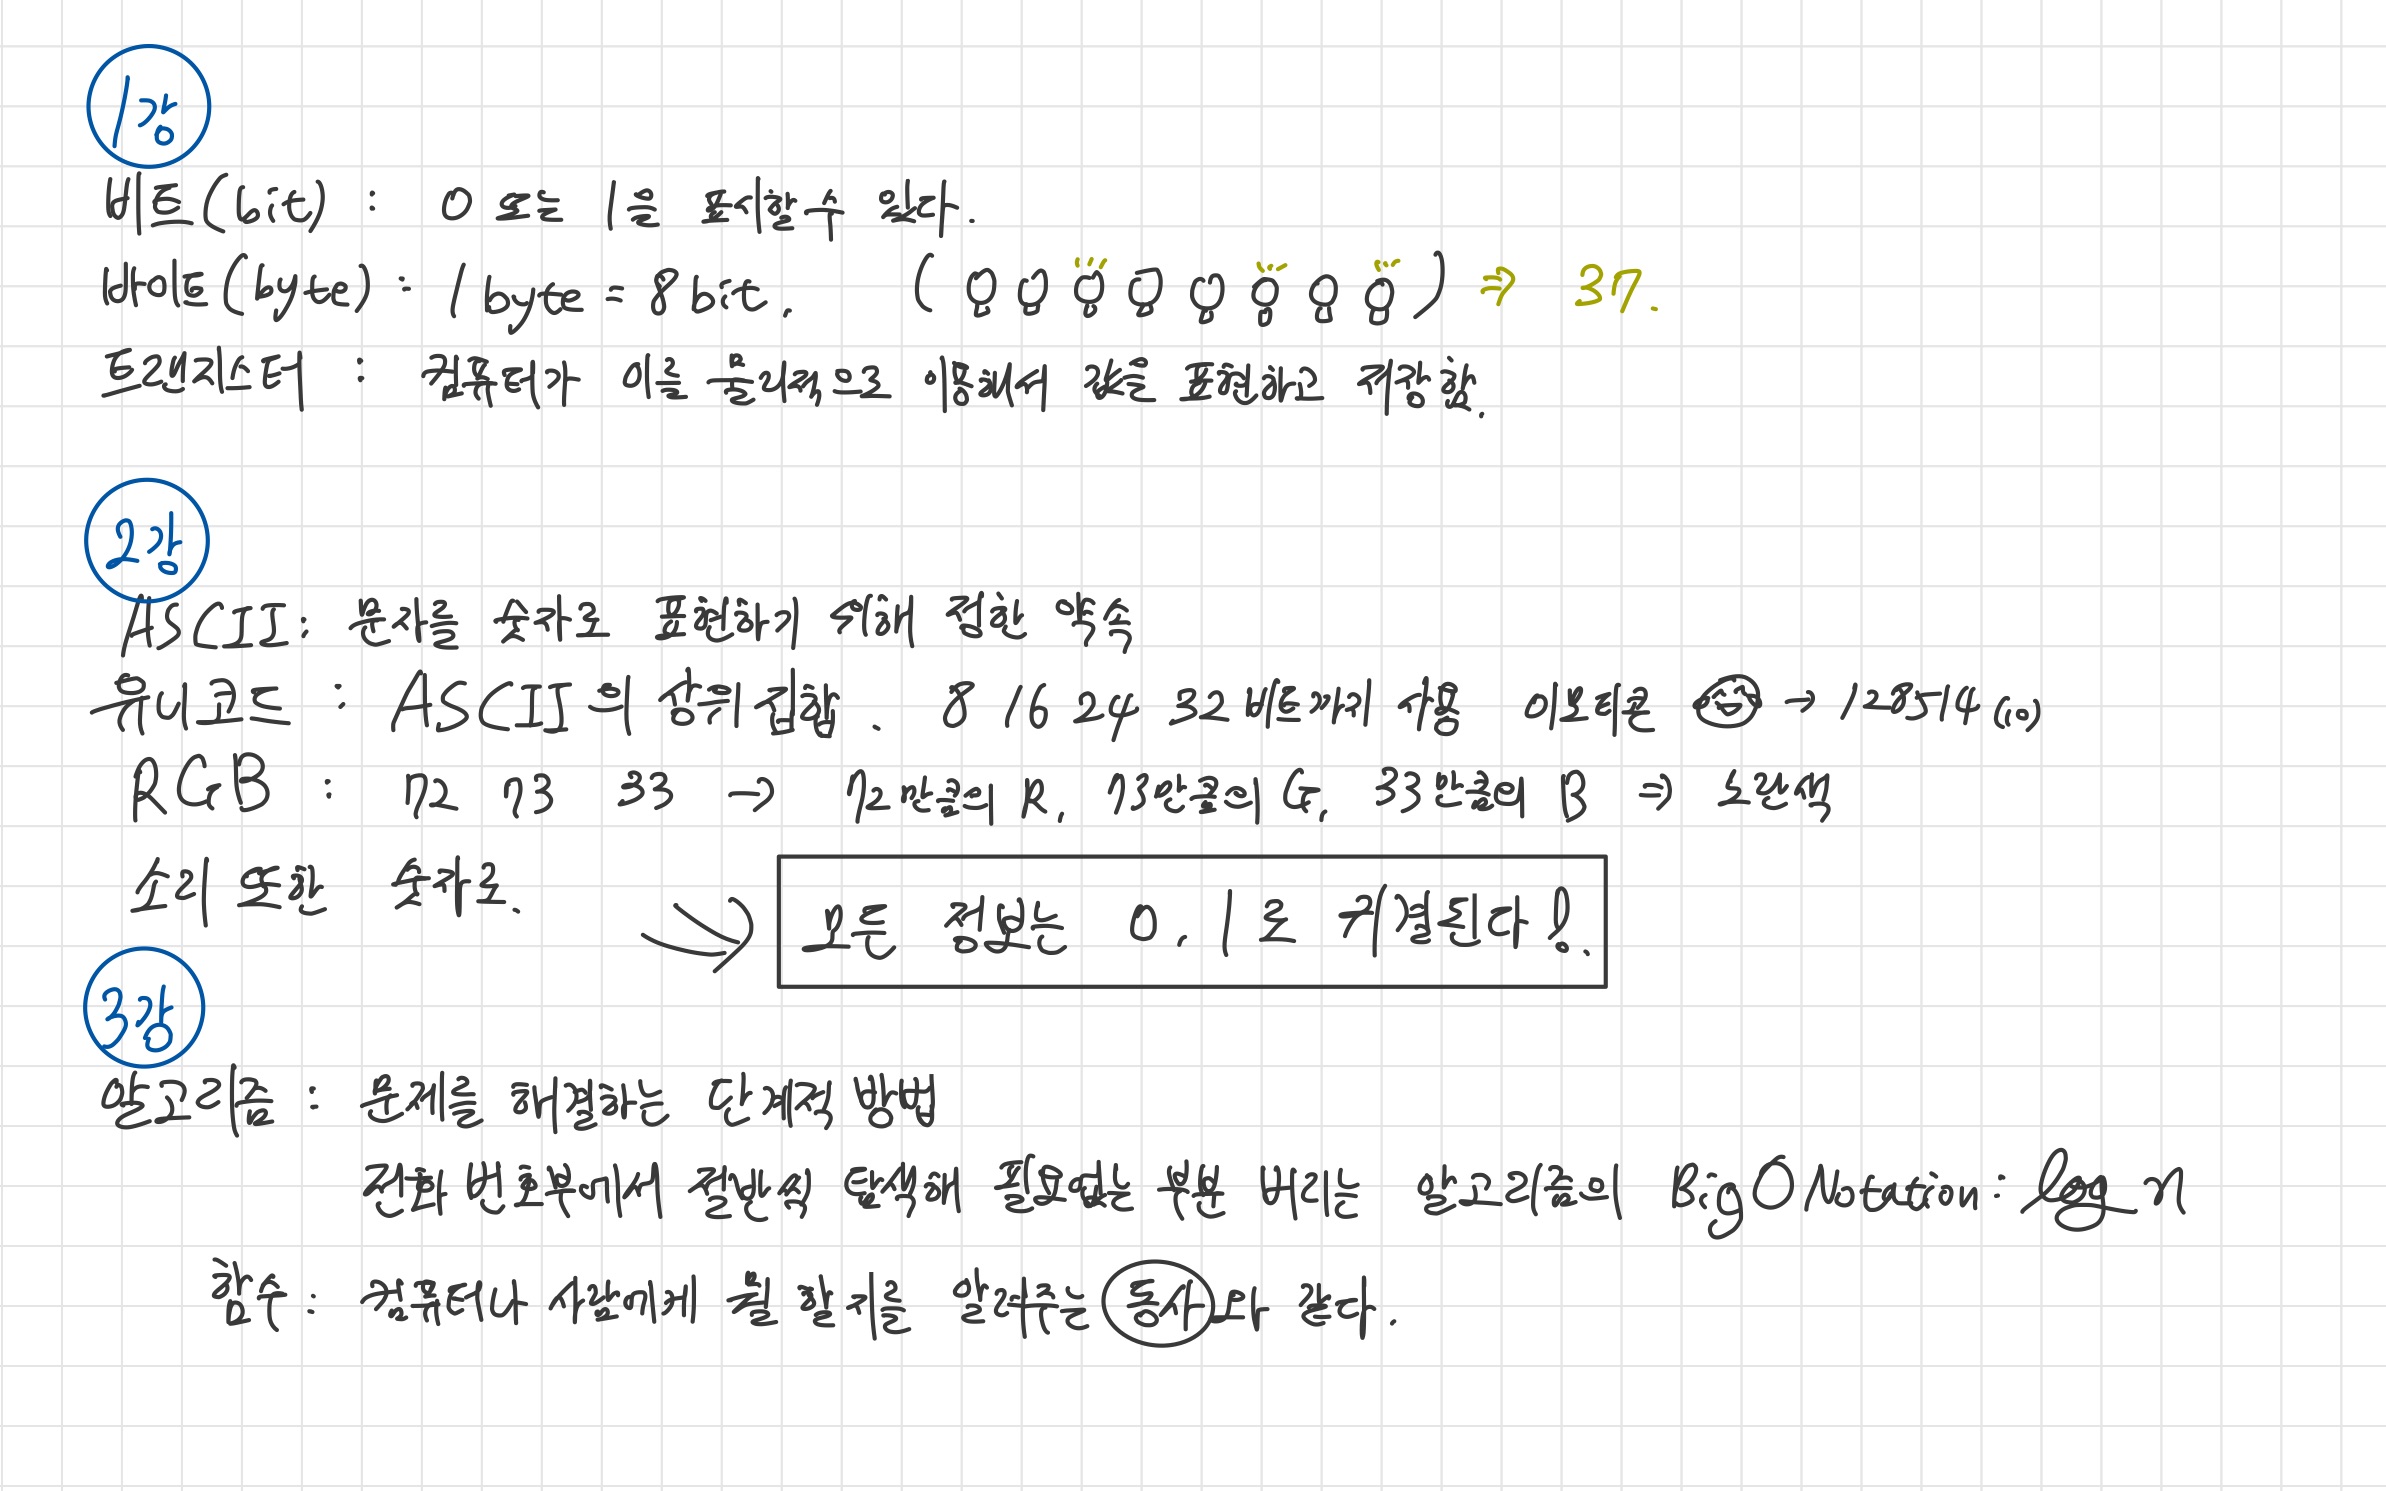 1강
비트(bit) : 0 또는 1을 표시할수 있다.
바이트(byte) : 1 byte = 8 bit. ( ) ⇒ 37.
트랜지스터 : 컴퓨터가 이를 물리적으로 이용해서 값을 표현하고 저장함.
2강
ASCII : 문자를 숫자로 표현하기 위해 정한 약속
유니코드 : ASCII의 상위집합. 8 16 24 32 비트까지 사용 이모티콘 → 128514 (10)
RGB : 72 73 33 → 72만큼의 R, 73만큼의 G, 33만큼의 B ⇒ 노란색
소리 또한 숫자로.
모든 정보는 0, 1로 귀결된다!.
3강
알고리즘 : 문제를 해결하는 단계적 방법
전화 번호부에서 절반씩 탐색해 필요없는 부분 버리는 알고리즘의 Big O Notation : log n
함수 : 컴퓨터나 사람에게 뭘 할지를 알려주는 동사와 같다.